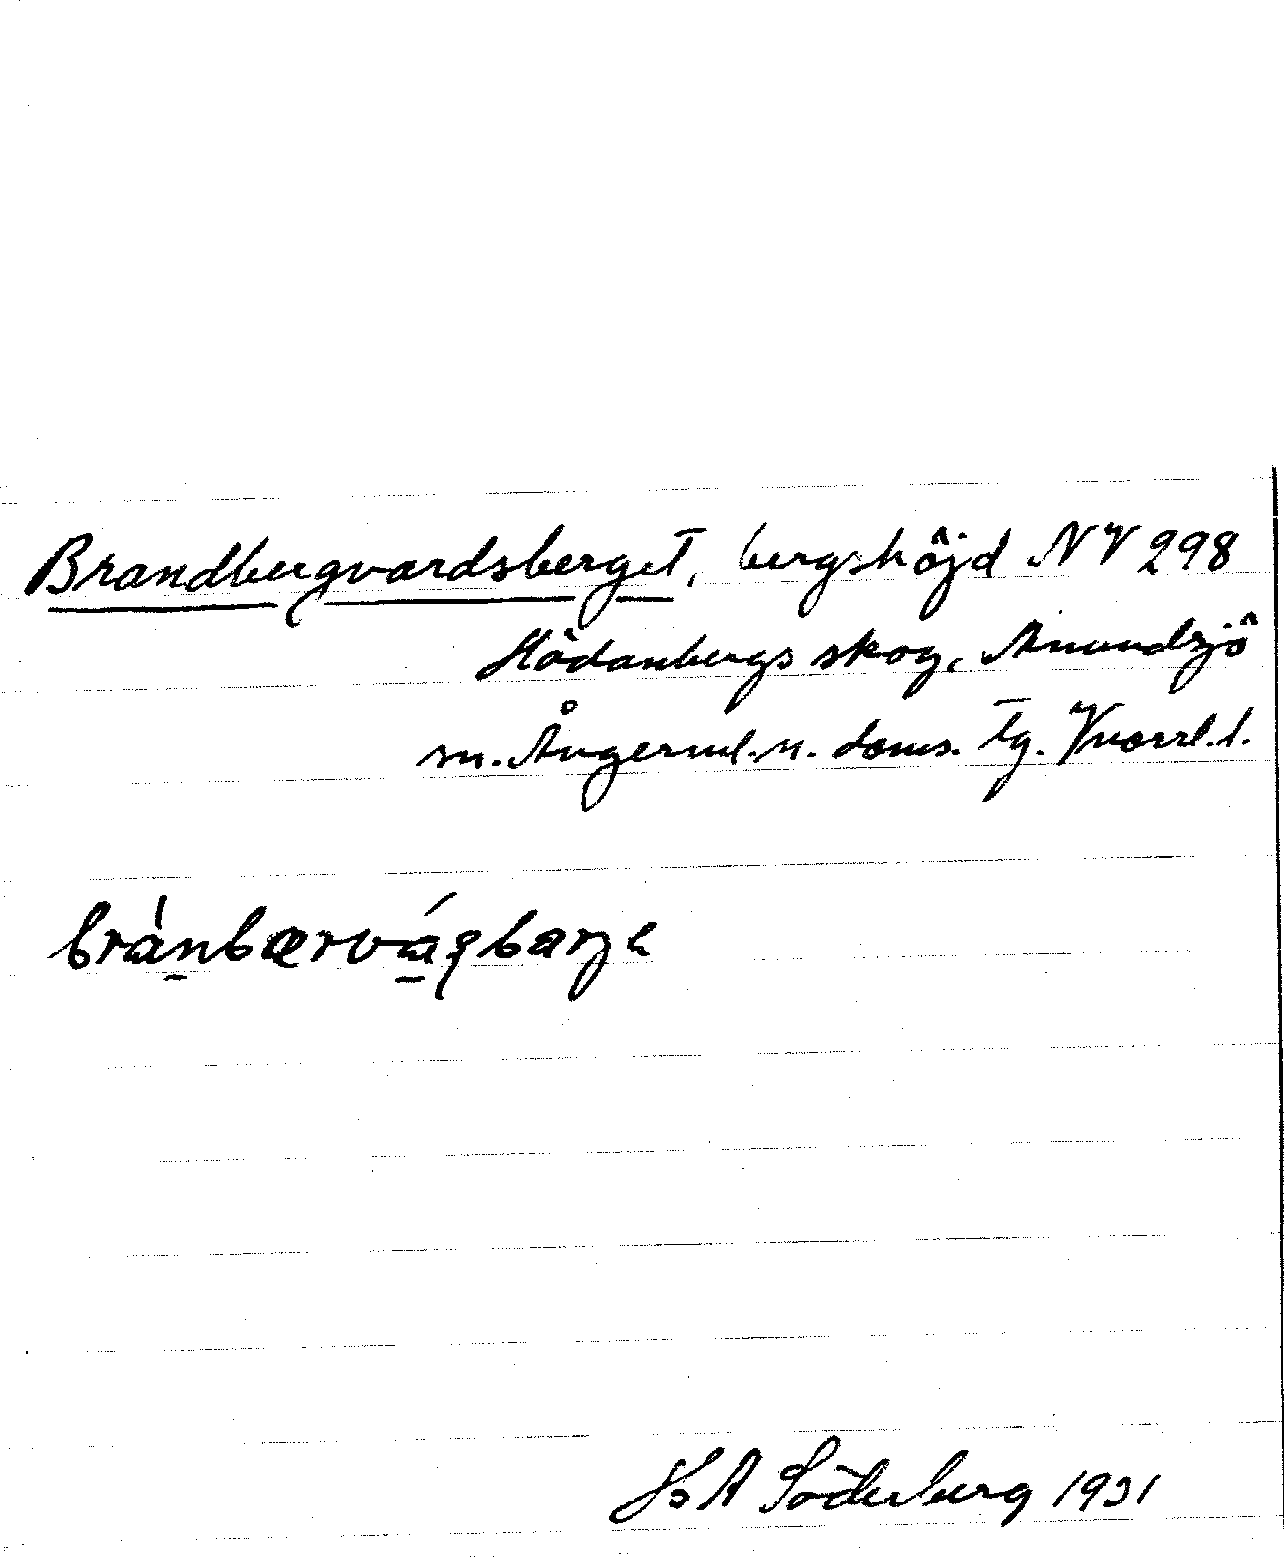 Brandbergvardsberget, bergshöjd NV 298
Hädanbergs skog, Anundsjö
sn. Ångerml. n. doms. tg. Vnorrl. l.
brànbærváɖbarje
H A Söderberg 1931